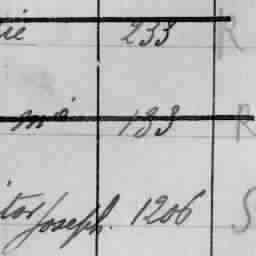 ie 233 R
183 R
tor Joseph. 1206 S